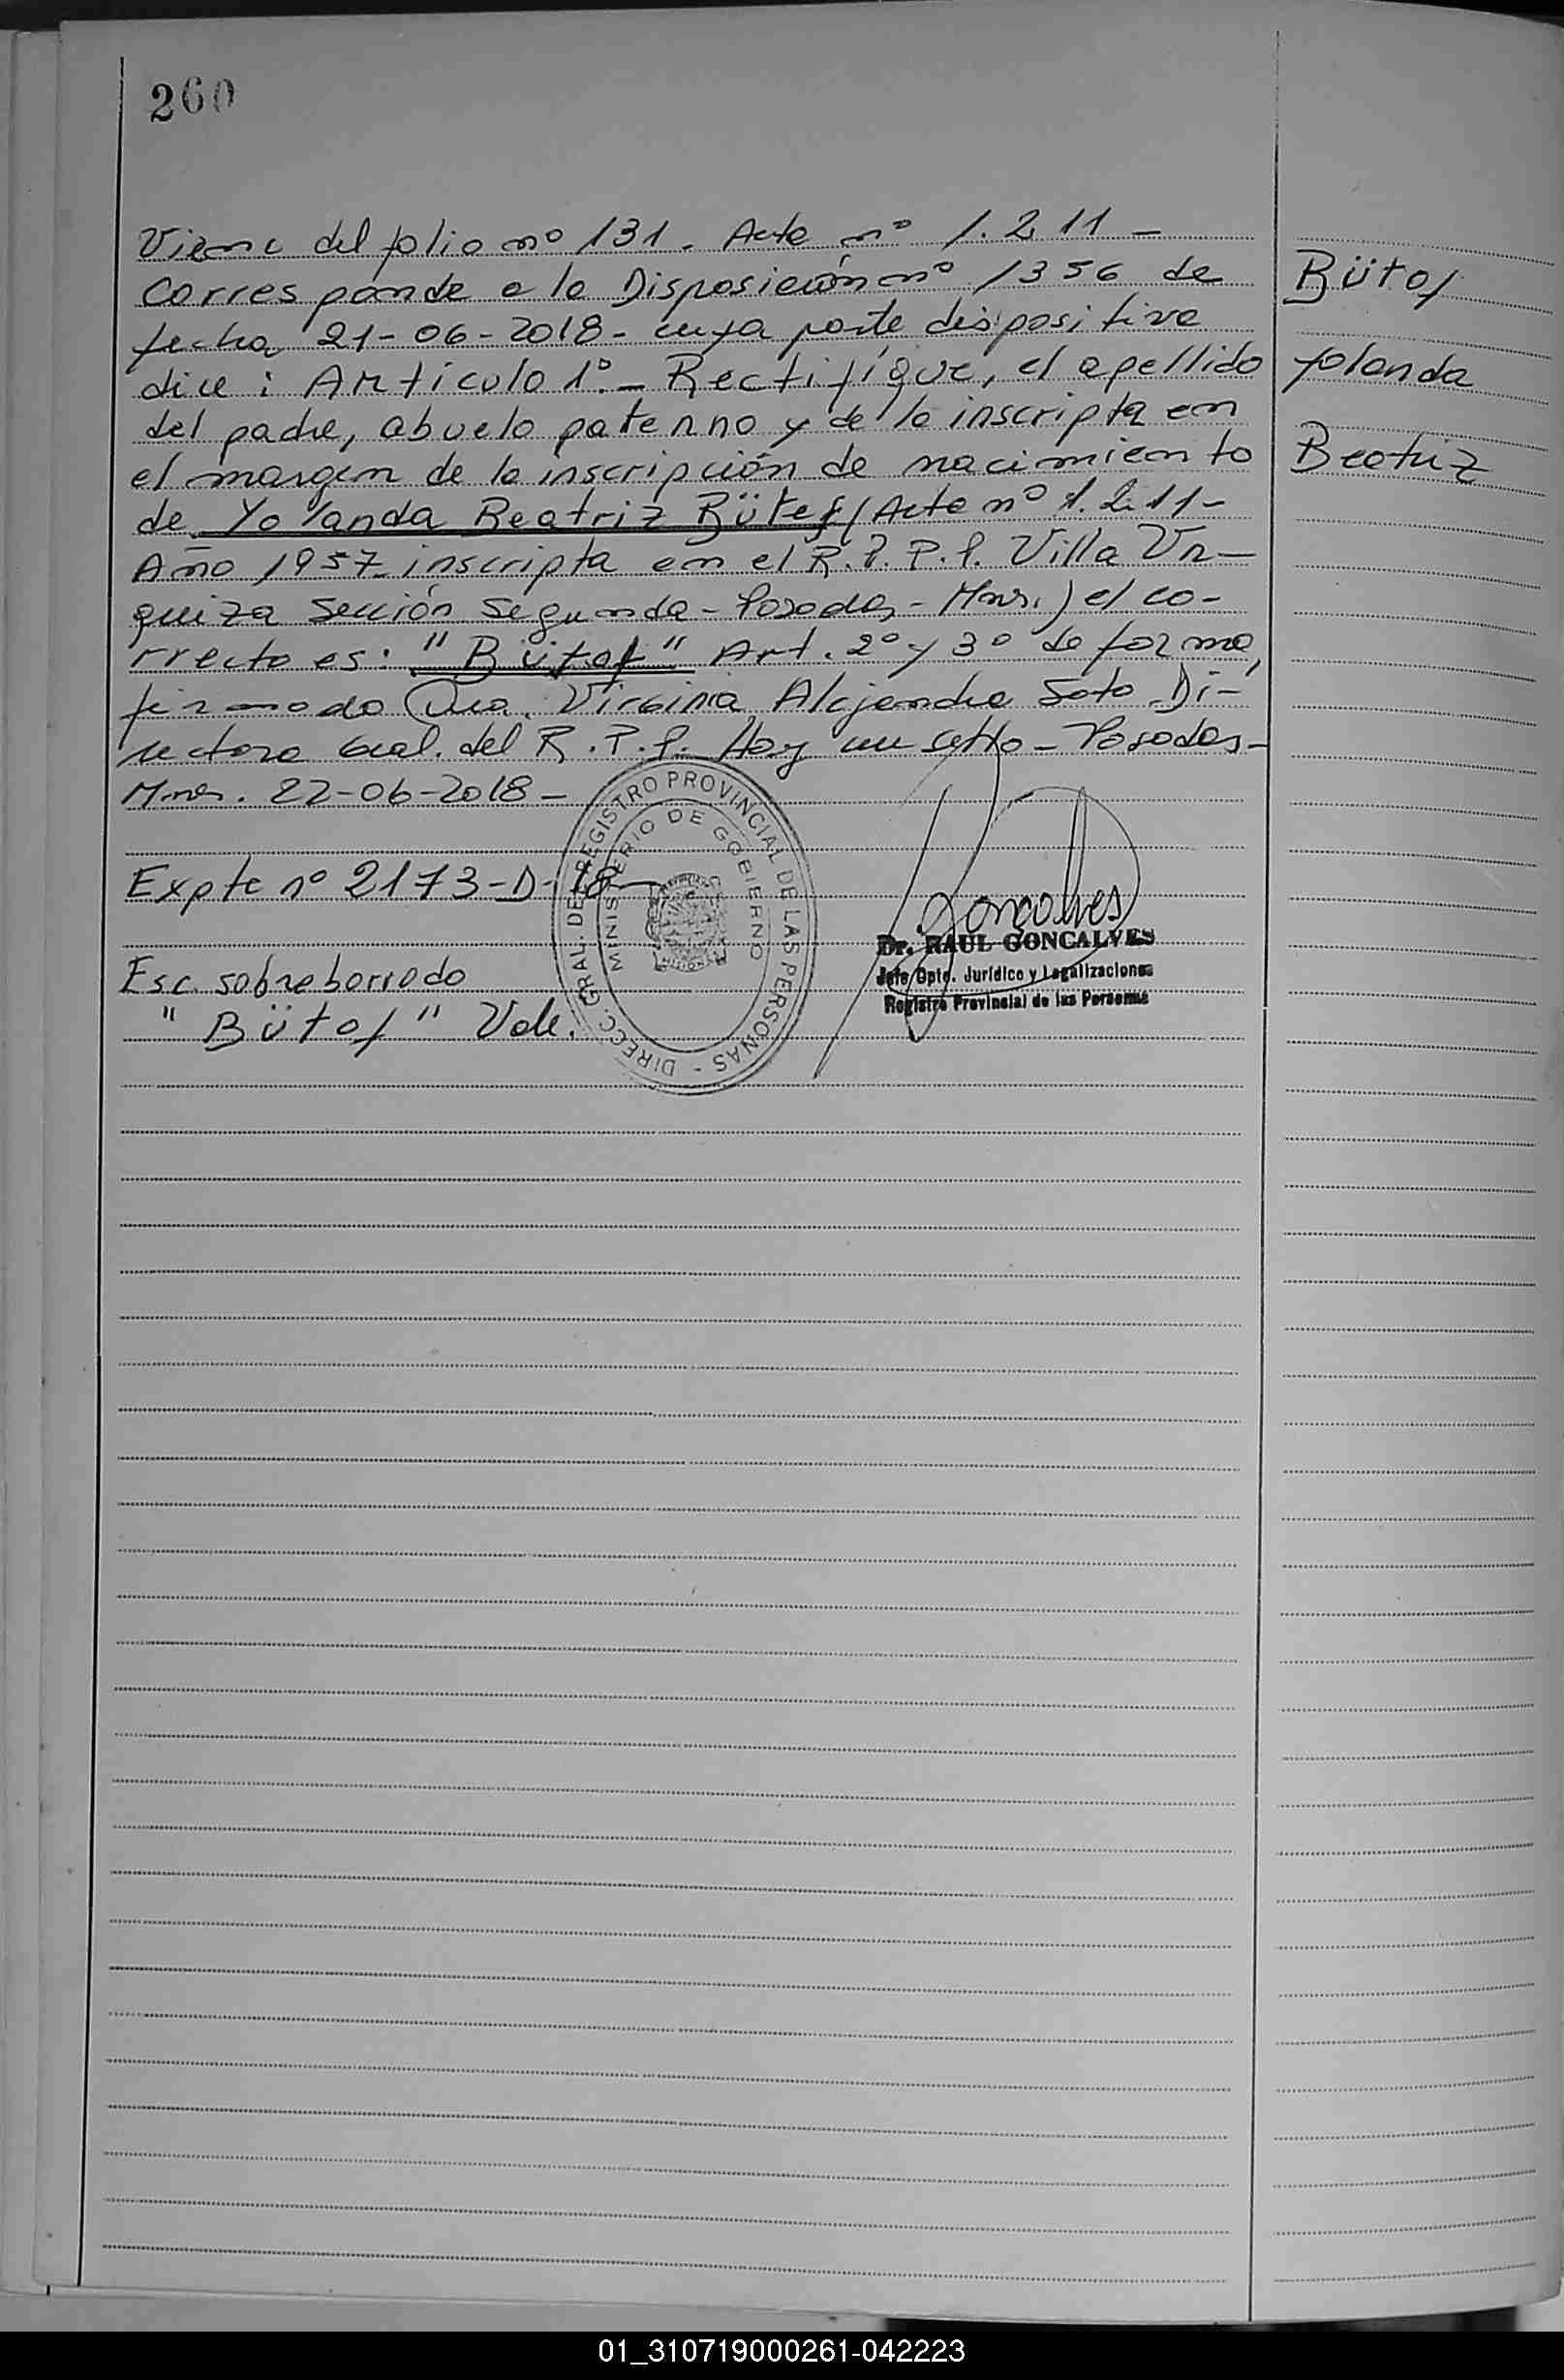 260
Viene del folio nº 131. Acta nº 1.211 -
Corresponde a la Disposición nº 1356 de
fecha 21-06-2018- cuya parte dispositiva
dice: Artículo 1º.- Rectifíque, el apellido
del padre, abuelo paterno y de la inscripta en
el margen de la inscripción de nacimiento
de Yolanda Beatriz Bütef (Acta nº 1.211-
Año 1957- inscripta en el R.P.P.P. Villa Ur-
quiza Sección Segunda- Posadas- Mnes.) el co-
rrecto es: "Bütof" Art. 2º y 3º de forma,
firmado Dra. Virginia Alejandra Soto Di-
rectora Gral. del R.P.P. Hoy Posadas-
Mnes. 22-06-2018-
Expte nº 2173-D-18-
Esc. sobreborrado
"Bütof" Vale.
Bütof
Yolanda
Beatriz
DIRECC. GRAL. DE REGISTRO PROVINCIAL DE LAS PERSONAS -
MINISTERIO DE GOBIERNO
MISIONES
Goncalves
Dr. RAUL GONCALVES
Jefe Dpto. Jurídico y Legalizaciones
Registro Provincial de las Personas
01_310719000261-042223